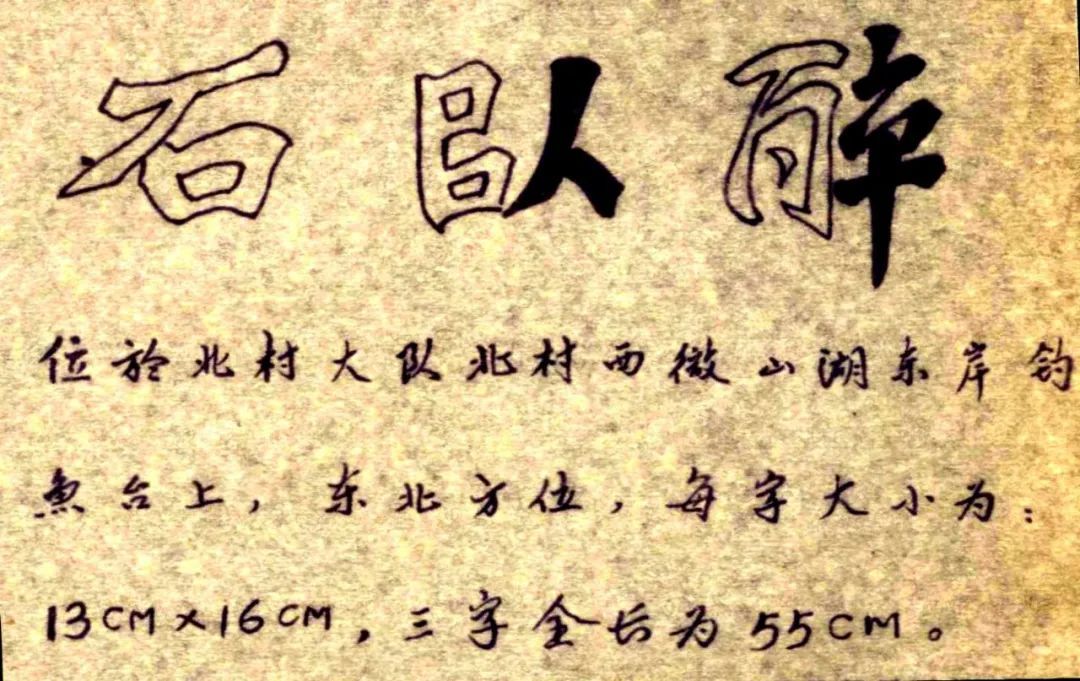 醉臥石
位於北村大队北村西微山湖东岸钓
魚台上，东北方位，每字大小为：
13CM×16CM，三字全长为55CM。